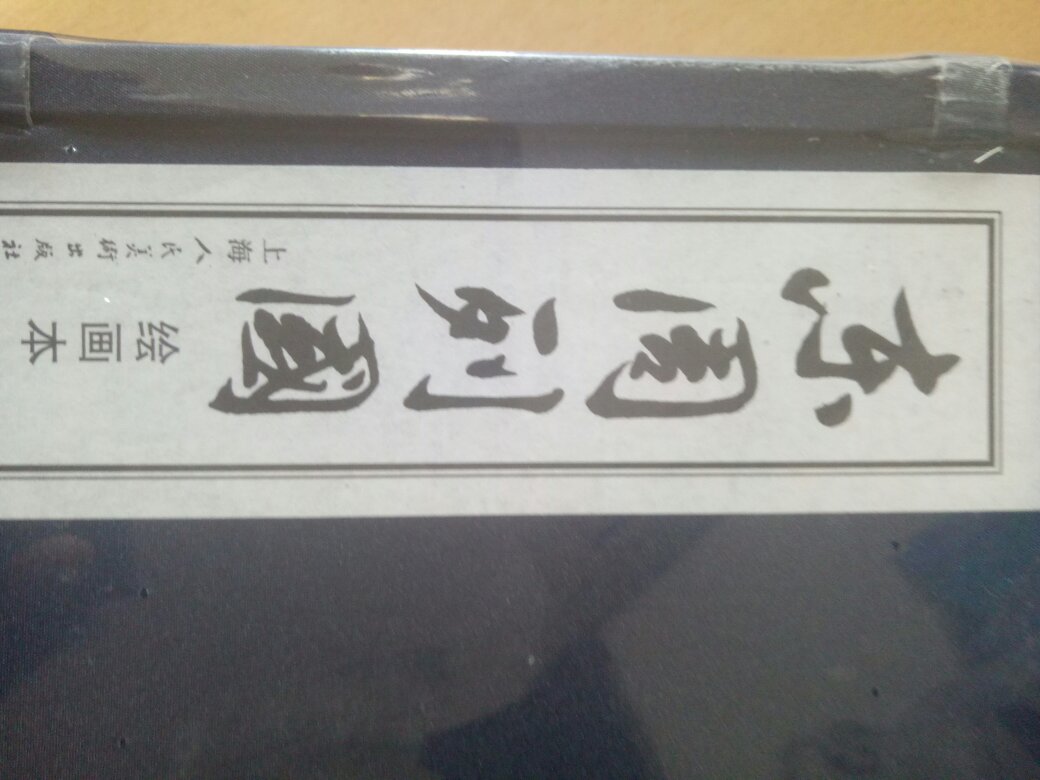 東周列國
绘画本
上海人民美術出版社